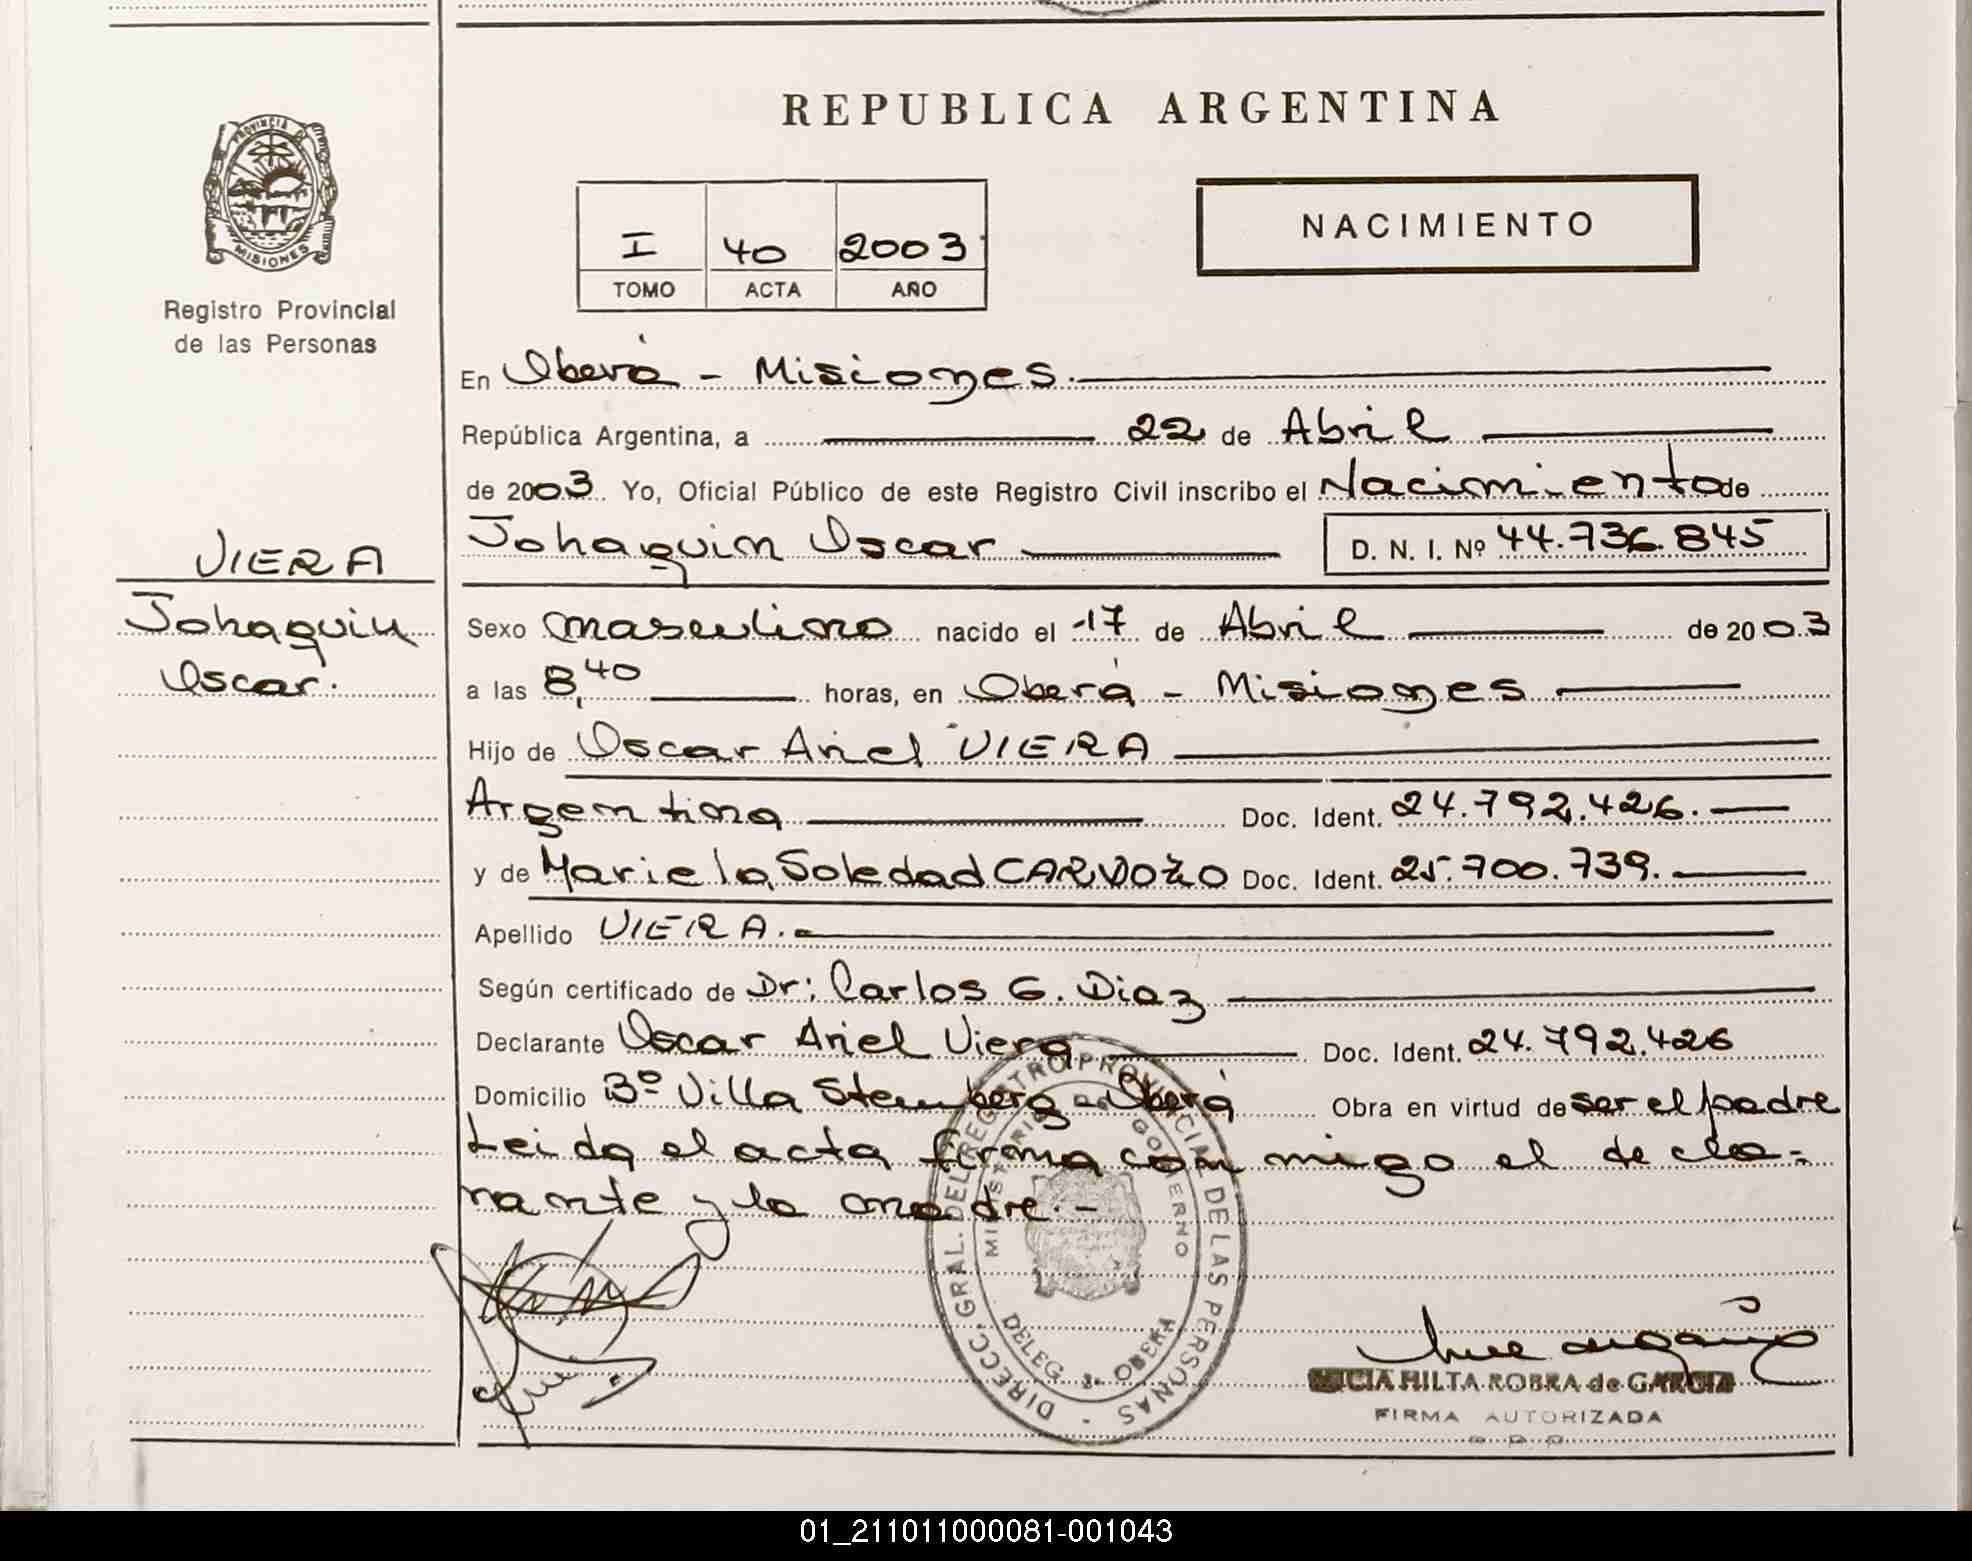 REPUBLICA ARGENTINA
PROVINCIA DE
MISIONES
Registro Provincial
de las Personas
I 40 2003
TOMO ACTA AÑO
NACIMIENTO
En Oberá - Misiones.
República Argentina, a 22 de Abril
de 2003 Yo, Oficial Público de este Registro Civil inscribo el Nacimiento de
Johaquin Oscar D. N. I. Nº 44.736.845
VIERA
Johaquin
Oscar.
Sexo masculino nacido el 17 de Abril de 2003
a las 8,40 horas, en Oberá - Misiones
Hijo de Oscar Ariel VIERA
Argentina Doc. Ident. 24.792.426.
y de Mariela Soledad CARDOZO Doc. Ident. 25.700.739.
Apellido VIERA.
Según certificado de Dr: Carlos G. Diaz
Declarante Oscar Ariel Viera Doc. Ident. 24.792.426
Domicilio Bº Villa Stemberg - Oberá Obra en virtud de ser el padre
Leida el acta firma conmigo el decla-
rante y la madre.-
DIRECC. GRAL. DEL REGISTRO PROVINCIAL DE LAS PERSONAS
MINISTERIO DE GOBIERNO
DELEG. OBERA
HILTA ROBRA de GARCIA
FIRMA AUTORIZADA
01_211011000081-001043